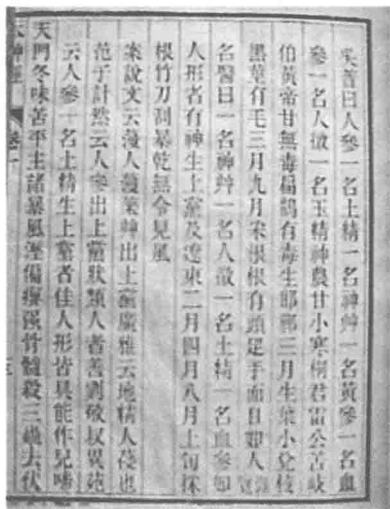 吳普曰人參一名土精一名神艸一名黃參一名血
參一名人微一名玉精神農甘小寒桐君雷公苦岐
伯黃帝甘無毒扁鵲有毒生邯鄲三月生葉小兌核
黑莖有毛三月九月采根根有頭足手面目如人
名醫曰一名神艸一名人微一名土精一名血參如
人形者有神生上黨及遼東二月四月八月上旬採
根竹刀刮暴乾無令見風
案說文云薓人薓藥艸出上黨廣雅云地精人葠也
范子計然云人參出上黨狀類人者善劉敬叔異苑
云人參一名土精生上黨者佳人形皆具能作兒啼
天門冬味苦平主諸暴風溼偏痺強骨髓殺三蟲去伏
卷一